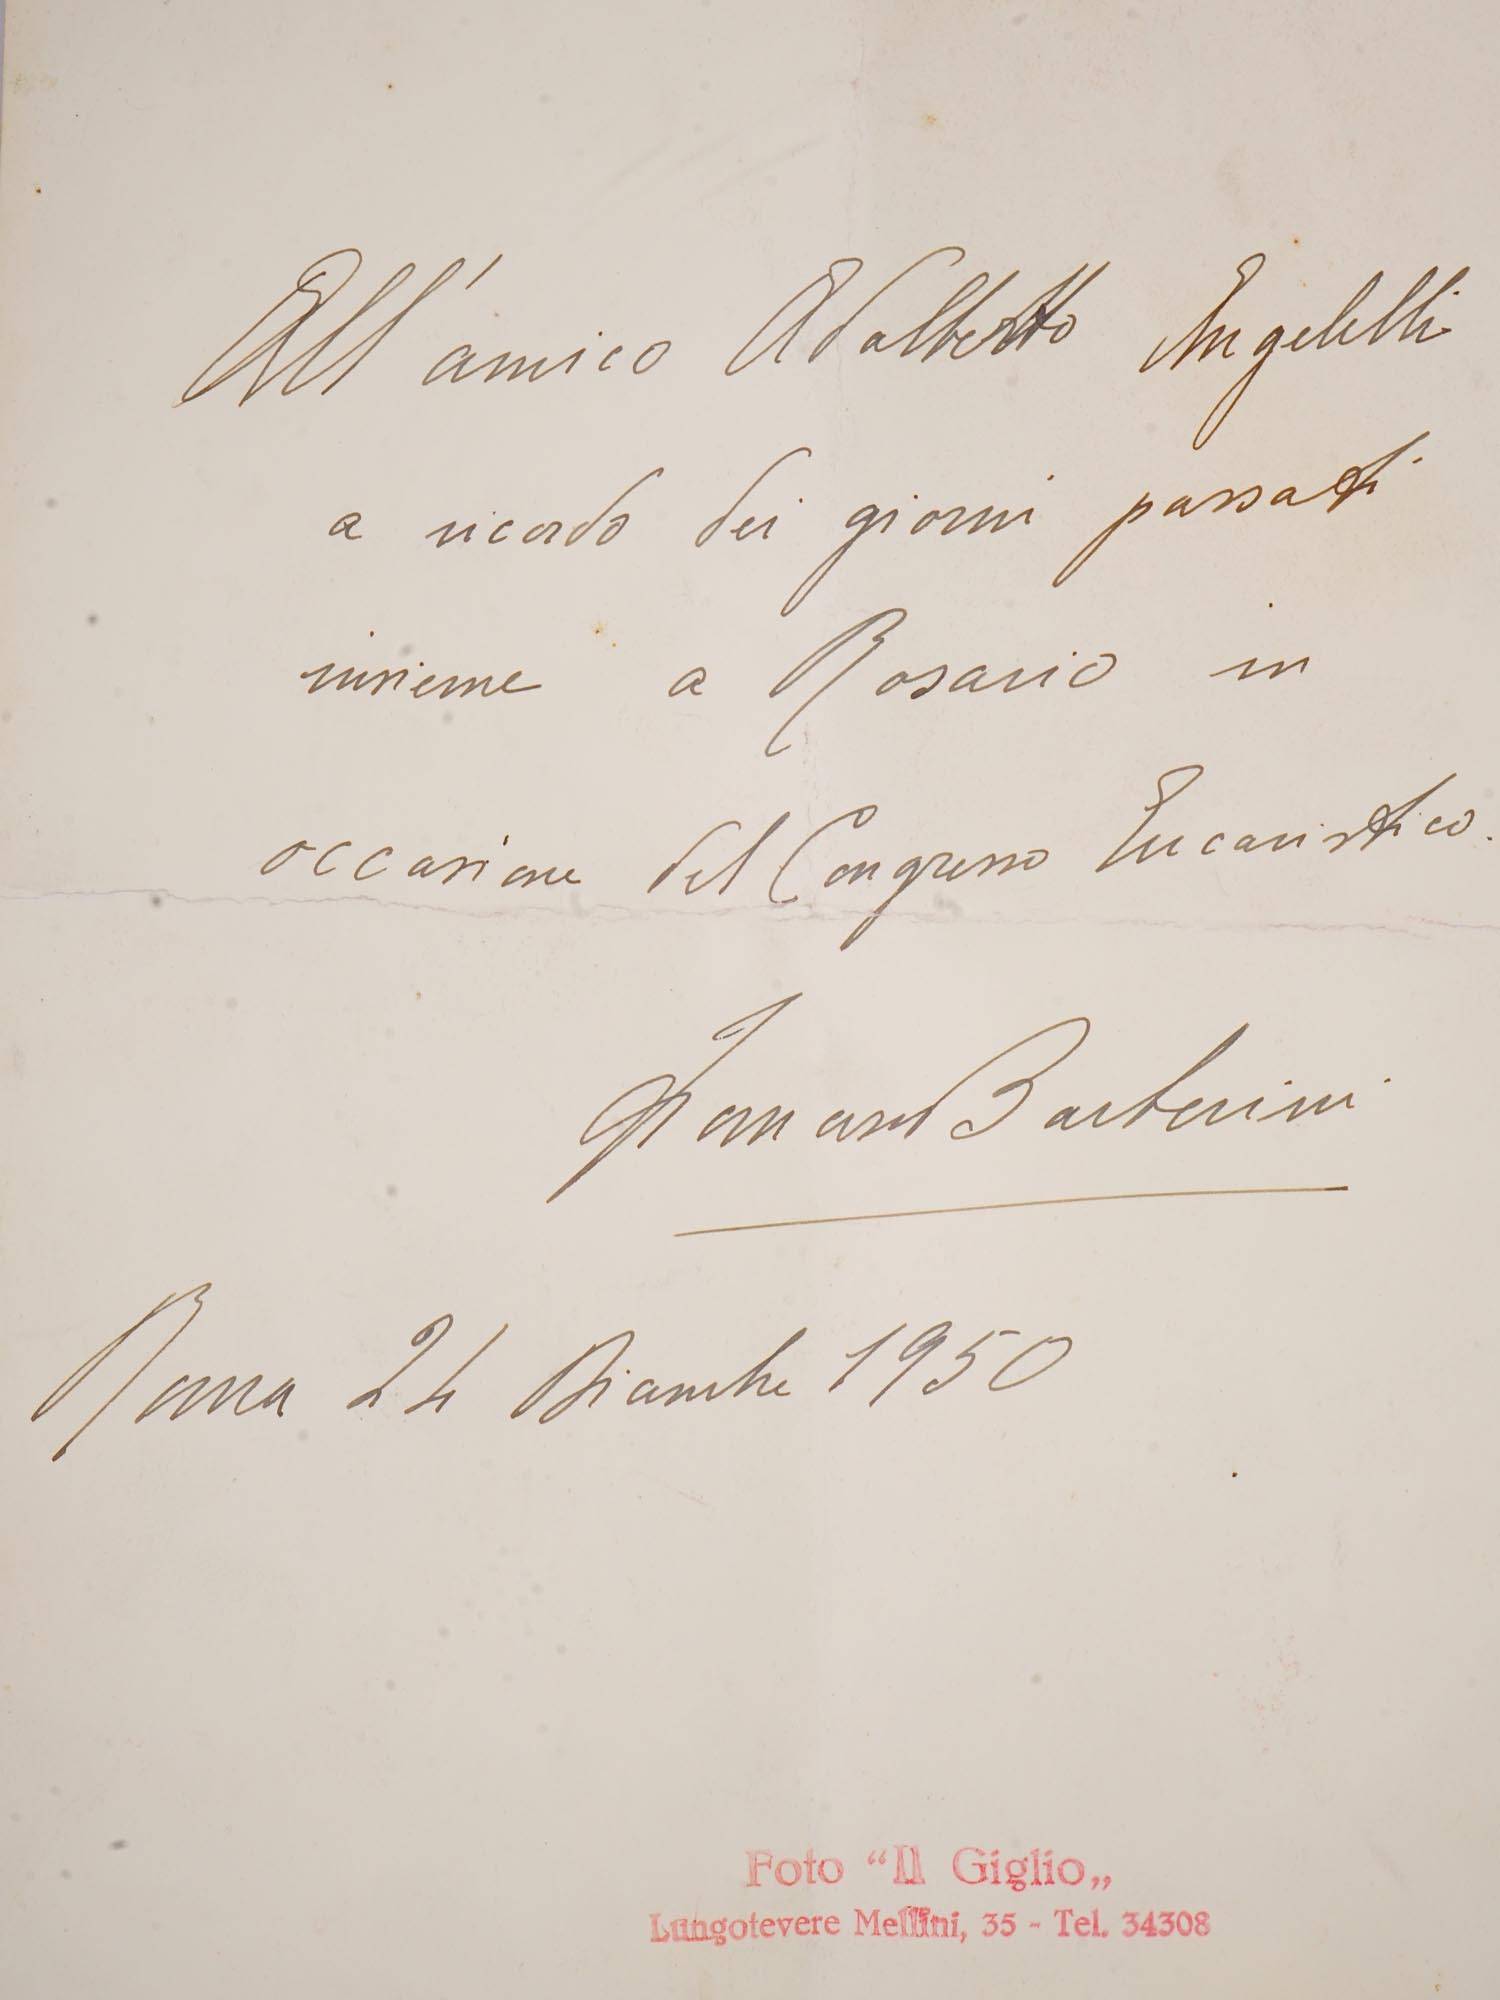 All'amico Adalberto Angelelli
a ricordo dei giorni passati
insieme a Rosario in
occasione del Congresso Eucaristico.
Barberini
Roma 24 Dicembre 1950
Foto “Il Giglio„
Lungotevere Mellini, 35 - Tel. 34308